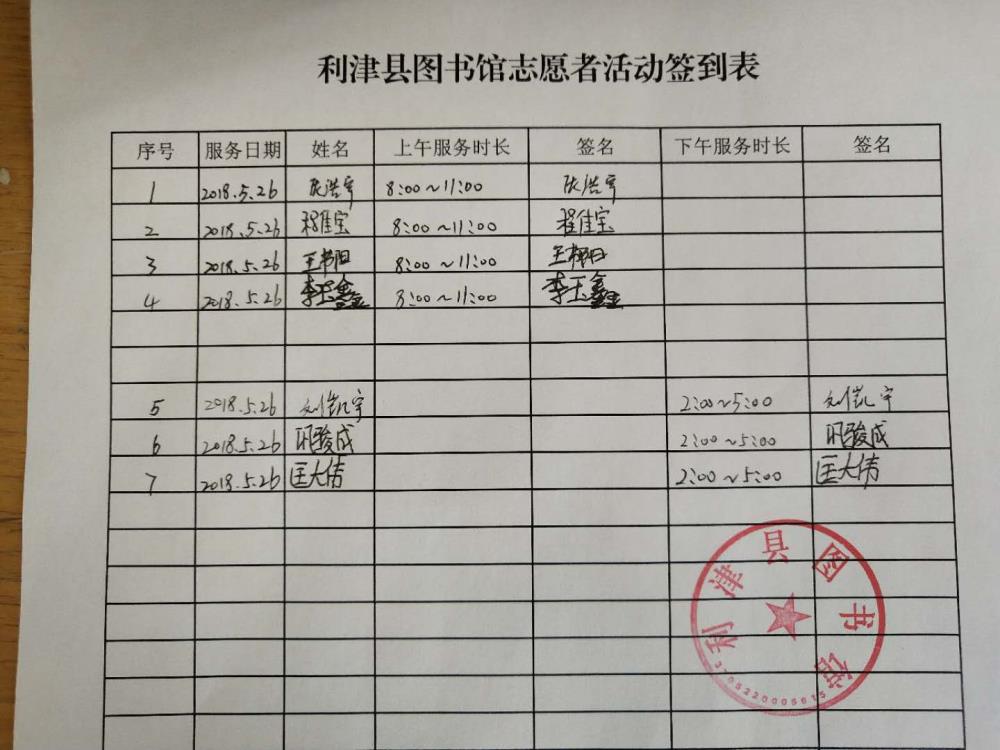 利津县图书馆志愿者活动签到表
序号 服务日期 姓名 上午服务时长 签名 下午服务时长 签名
1 2018.5.26 张浩宇 8:00~11:00 张浩宇
2 2018.5.26 程佳宝 8:00~11:00 程佳宝
3 2018.5.26 8:00~11:00
4 2018.5.26 李玉鑫 8:00~11:00 李玉鑫
5 2018.5.26 刘凯宇 2:00~5:00 刘凯宇
6 2018.5.26 巩骏成 2:00~5:00 巩骏成
7 2018.5.26 匡大伟 2:00~5:00 匡大伟
利津县图书馆